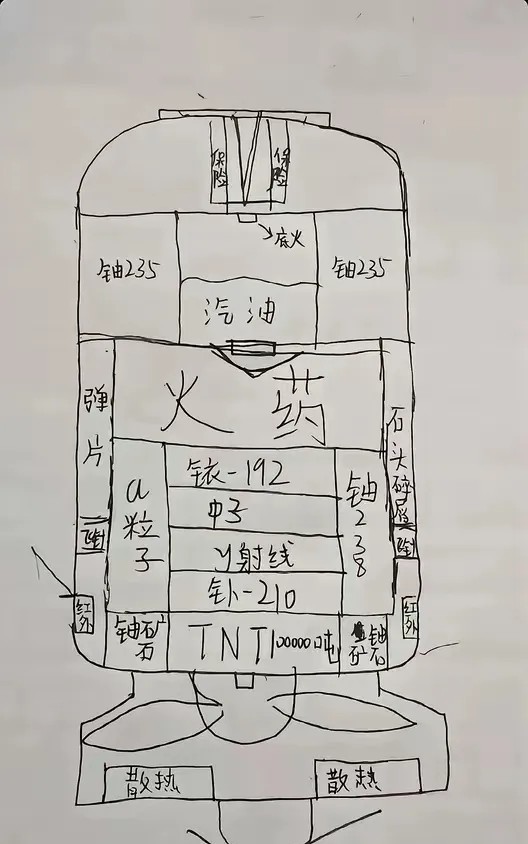 保险
保险
底火
铀235
铀235
汽油
火药
弹片
石头碎屑
铱-192
a粒子
铀238
中子
y射线
钋-210
红外
红外
铀矿石
TNT100000吨
铀矿石
散热
散热